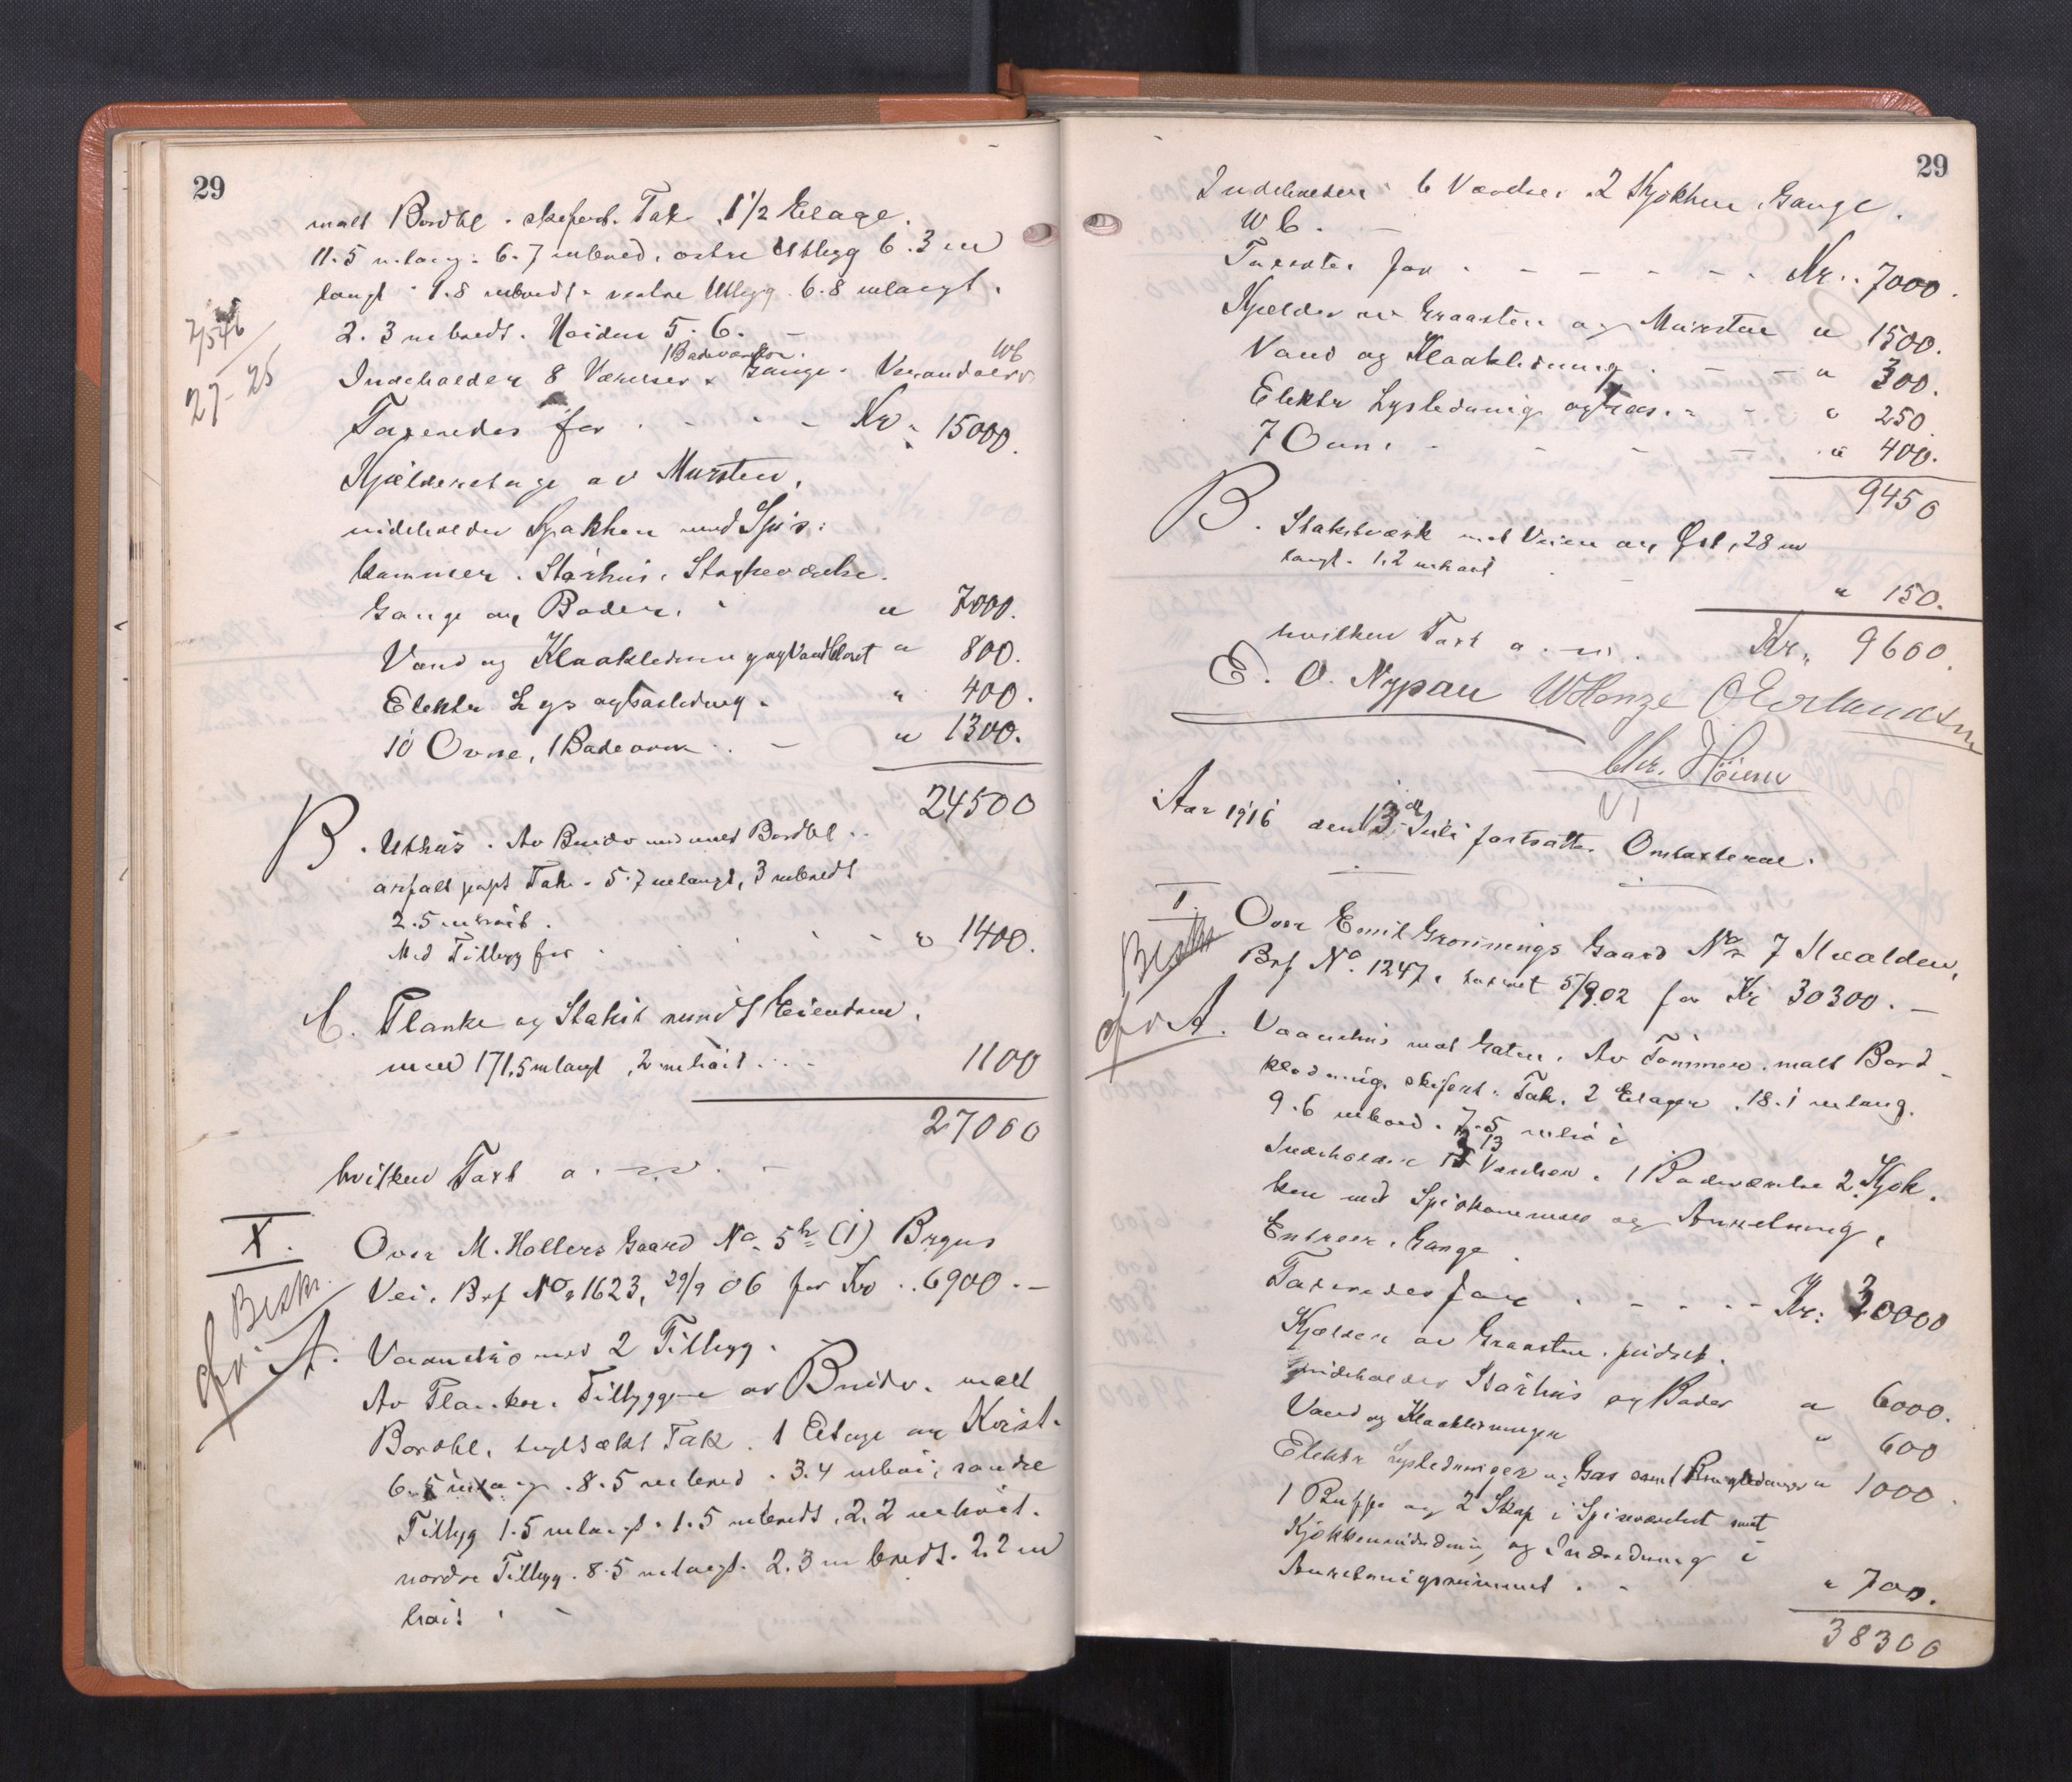 29
malt Bordkl. skifert. Tak 1 1/2 Etage.
11.5 m lang. 6.7 m bred. østre Utbygg 6.3 m
langt. 1.8 m bredt. vestre Utbygg 6.8 m langt.
2.3 m bredt. Høiden 5.6. -
1 Badeværelse. WC
Indeholder 8 Værelser. Gange. Veranda
27-25
Taxeredes for . - - - Kr. 15000.
Kjælderetage av Mursten,
indeholder Kjøkken med Spis-
kammer. Størhus. Strykeværelse.
Gange og Boder. " 7000.
Vand og Kloakledning og Vandkloset " 800.
Elektr Lys og Gasledning. " 400.
10 Ovne, 1 Badeovn .. - " 1300.
24500
B. Uthus. Av Bindv. med malt Bordkl..
asfalt papt Tak. 5.7 m langt, 3 m bredt
2.5 m høit.
Med Tillegg for " 1400.
C. Planke og Stakit rundt Eiendom.
med 171,5 m langt, 2 m høit ... 1100
27000
hvilken Taxt a. -
X. Over M. Hollers Gaard No. 5 h (i) Brgus
Vei. Brf No. 1623, 29/9 06 for Kr. 6900.-
Beskr.
A. Vaanehus med 2 Tilbygg.
Av Planker. Tilbyggene av Bindv. malt
Bordkl. teglsækt Tak. 1 Etage og Kvist.
6.5 m lang. 8.5 m bred. 3.4 m høi, søndre
Tilbyg 1.5 m langt. 1.5 m bredt. 2.2 m høit.
nordre Tilbyg. 8.5 m langt. 2.3 m bredt. 2.2 m
høit. -
29
Indeholder 6 Værelser. 2 Kjøkken, Gange.
WC. -
Taxeres for . - - - - - Kr. 7000.
Kjælder av Graasten og Mursten " 1500.
Vand og Kloakledning . - - " 300.
Elektr Lysledning og Gas. - " 250
7 Ovne - - - - " 400.
9450
B. Stakitværk mot Veien og Øst, 28 m
langt. 1.2 m høit
" 150.
hvilken Taxt a. Kr. 9600.
E. O. Nypan W Henze O Erlandsen
Chr. Høiem
VI
Aar 1916 den 13de Juli fortsattes Omtaxterne.
I. Over Emil Grønnings Gaard No 7 Ilvolden,
Beskr
Brf No. 1247. taxeret 5/9.02 for Kr 30300.-
A. Vaanehus mot Gaten. Av Tømmer. malt Bord-
klædning. skifert. Tak. 2 Etager. 18.1 m lang.
9.6 m bred. 7.5 m høi
13
Indeholder Værelser. 1 Badeværelse 2 Kjøk-
ken med Spiskammer og Anretning,
Entreer. Gange.
Taxeredes for . - . . - Kr: 30000
Kjælder av Graasten. pudset.
indeholder Størhus og Boder " 6000.
Vand og Kloakledninger " 600
Elektr Lysledninger og Gas samt Ringledninger " 1000.
1 Buffe og 2 Skap i Spiseværelset samt
Kjøkkenindredning og Indredning i
Anretningsrummet . - " 700.
38300